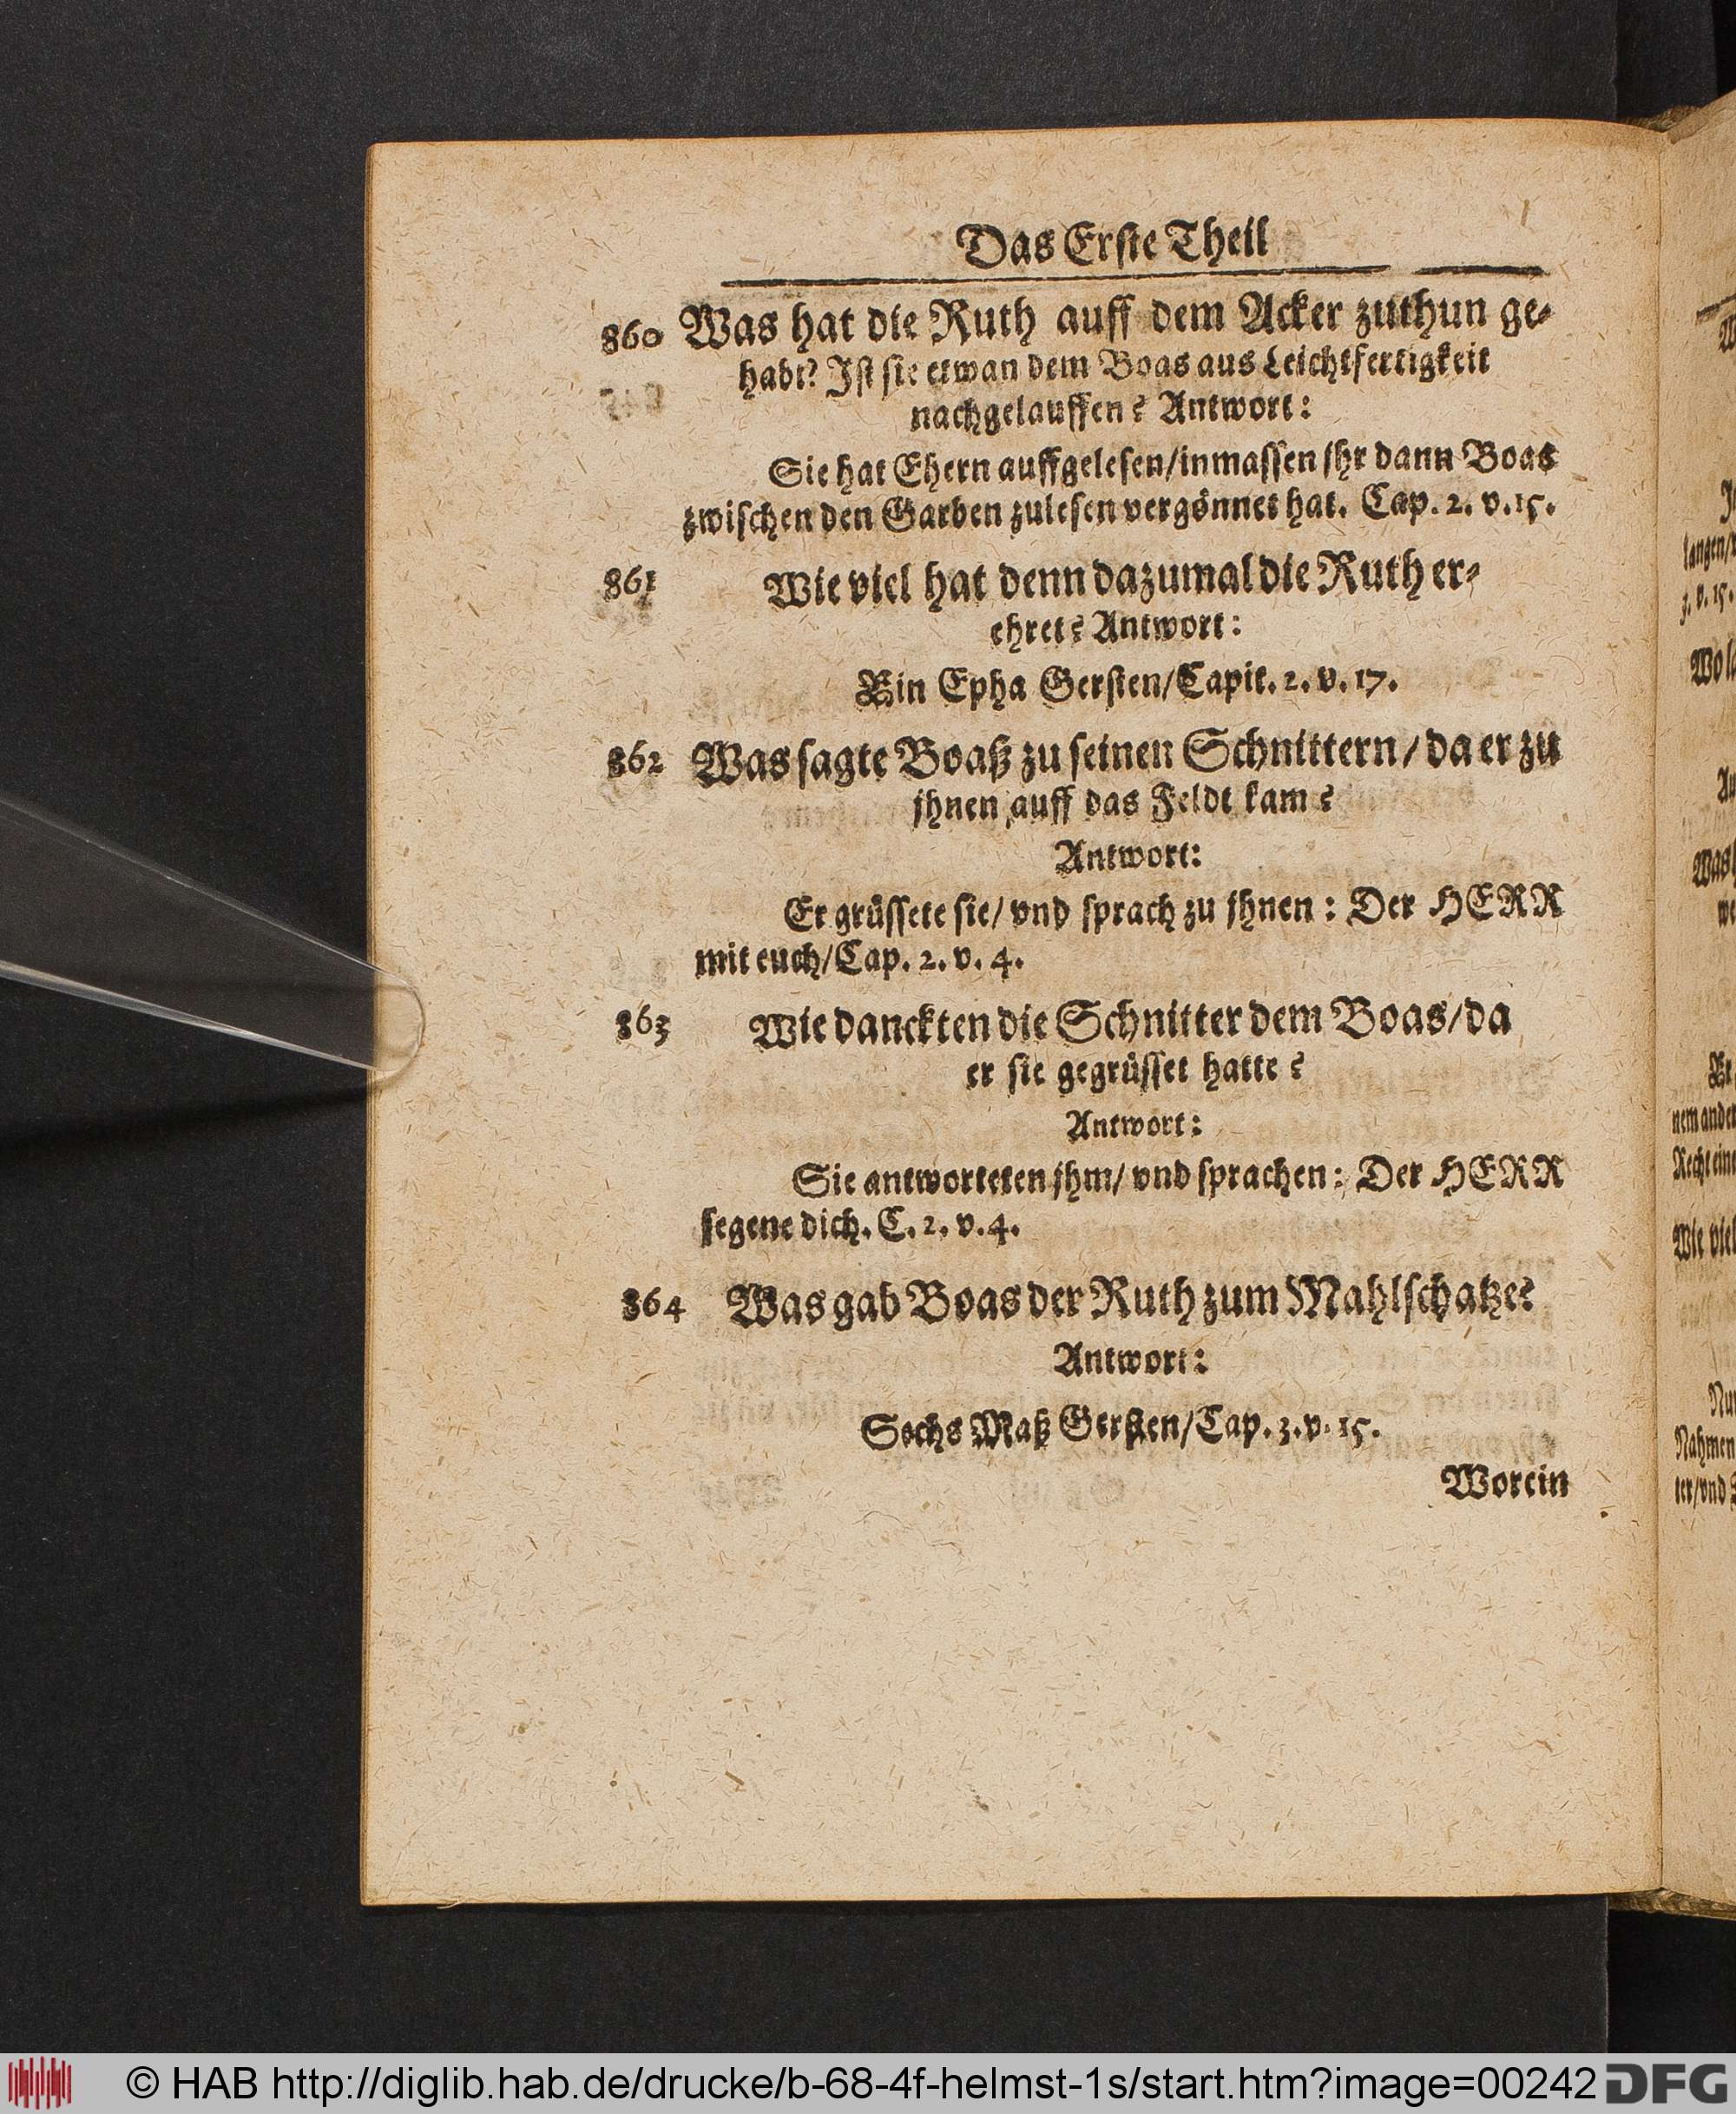 Das Erste Theil
860 Was hat die Ruth auff dem Acker zuthun ge-
habt? Ist sie etwan dem Boas aus Leichtfertigkeit
nachgelauffen? Antwort:
Sie hat Ehern auffgelesen/inmassen jhr dann Boas
zwischen den Garben zulesen vergönnet hat. Cap. 2. v. 15.
861 Wie viel hat denn dazumal die Ruth er-
ehret? Antwort:
Ein Epha Gersten/Capit. 2. v. 17.
862 Was sagte Boaß zu seinen Schnittern/da er zu
jhnen auff das Feldt kam?
Antwort:
Er grüssete sie/vnd sprach zu jhnen: Der HERR
mit euch/Cap. 2. v. 4.
863 Wie danckten die Schnitter dem Boas/da
er sie gegrüsset hatte?
Antwort:
Sie antworteten jhm/vnd sprachen: Der HERR
segene dich. C. 2. v. 4.
864 Was gab Boas der Ruth zum Mahlschatze?
Antwort:
Sechs Maß Gersten/Cap. 3. v. 15.
Worein
langen/
3. v. 15.
Nahmen
ter/vnd
Wie viel
© HAB http://diglib.hab.de/drucke/b-68-4f-helmst-1s/start.htm?image=00242 DFG